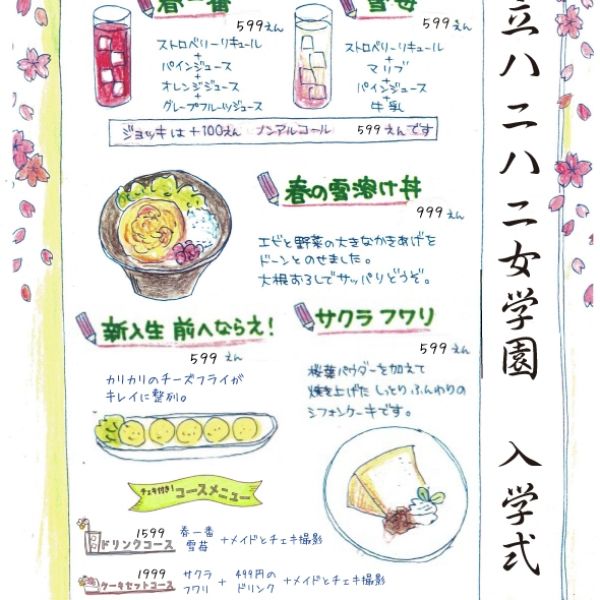 春一番
599えん
ストロベリーリキュール
+
パインジュース
+
オレンジジュース
+
グレープフルーツジュース
雪苺
599えん
ストロベリーリキュール
+
マリブ
+
パインジュース
+
牛乳
ジョッキは+100えん ノンアルコール 599えんです
春の雪溶け丼
999えん
エビと野菜の大きなかきあげを
ドーンとのせました。
大根おろしでサッパリどうぞ。
新入生 前へならえ!
599えん
カリカリのチーズフライが
キレイに整列。
サクラフワリ
599えん
桜葉パウダーを加えて
焼き上げた しっとりふんわりの
シフォンケーキです。
チェキ付き!コースメニュー
1599
ドリンクコース
春一番
雪苺
+メイドとチェキ撮影
1999
ケーキセットコース
サクラ
フワリ
+
499円の
ドリンク
+メイドとチェキ撮影
立ハニハニ女学園 入学式